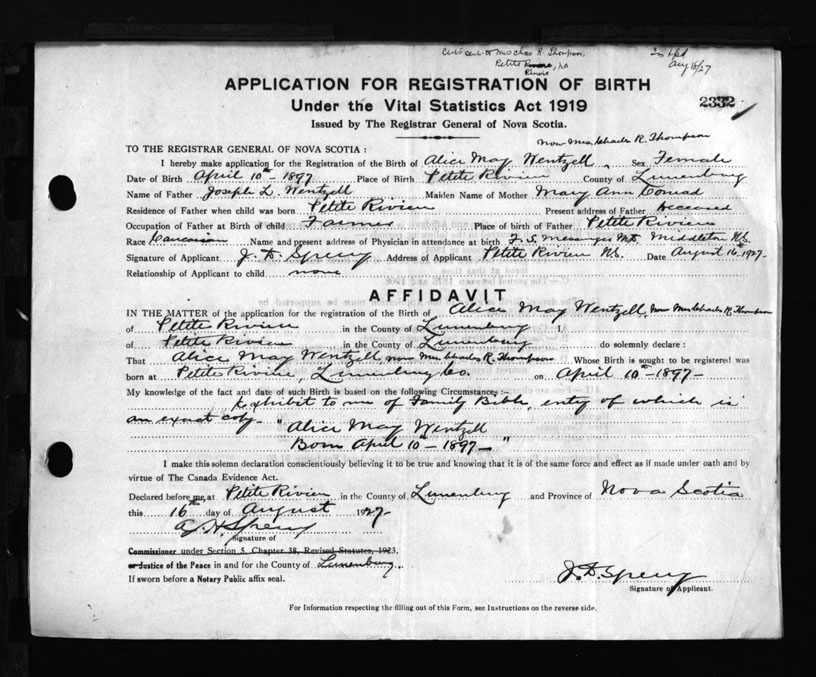 Mrs Chas R. Thompson
Petite Riviere, NS
Riviere
Aug 16/27
APPLICATION FOR REGISTRATION OF BIRTH
Under the Vital Statistics Act 1919
2332
Issued by The Registrar General of Nova Scotia.
now Mrs. Charles R. Thompson
TO THE REGISTRAR GENERAL OF NOVA SCOTIA :
I hereby make application for the Registration of the Birth of Alice May Wentzell Sex Female
Date of Birth April 10th - 1897 Place of Birth Petite Riviere County of Lunenburg
Name of Father Joseph L. Wentzell Maiden Name of Mother Mary Ann Conrad
Residence of Father when child was born Petite Riviere Present address of Father deceased
Occupation of Father at Birth of child Farmer Place of birth of Father Petite Riviere
Race Caucasian Name and present address of Physician in attendance at birth F. S. Messenger Md. Middleton NS.
Signature of Applicant J. D. Sperry Address of Applicant Petite Riviere NS. Date August 16th 1927.
Relationship of Applicant to child none
AFFIDAVIT
IN THE MATTER of the application for the registration of the Birth of Alice May Wentzell, now Mrs Charles R. Thompson
of Petite Riviere in the County of Lunenburg I,
of Petite Riviere in the County of Lunenburg do solemnly declare :
That Alice May Wentzell, now Mrs. Charles R. Thompson Whose Birth is sought to be registered was
born at Petite Riviere, Lunenburg Co. on April 10th - 1897 -
My knowledge of the fact and date of such Birth is based on the following Circumstances :-
Exhibit to me of Family Bible, entry of which is
an exact copy. "Alice May Wentzell
Born April 10th - 1897 - "
I make this solemn declaration conscientiously believing it to be true and knowing that it is of the same force and effect as if made under oath and by
virtue of The Canada Evidence Act.
Declared before me at Petite Riviere in the County of Lunenburg and Province of Nova Scotia
this 16th day of August 1927.
Sperry
Signature of
Commissioner under Section 5, Chapter 38, Revised Statutes, 1923.
or Justice of the Peace in and for the County of Lunenburg.
If sworn before a Notary Public affix seal.
J. D. Sperry
Signature of Applicant.
For Information respecting the filling out of this Form, see Instructions on the reverse side.